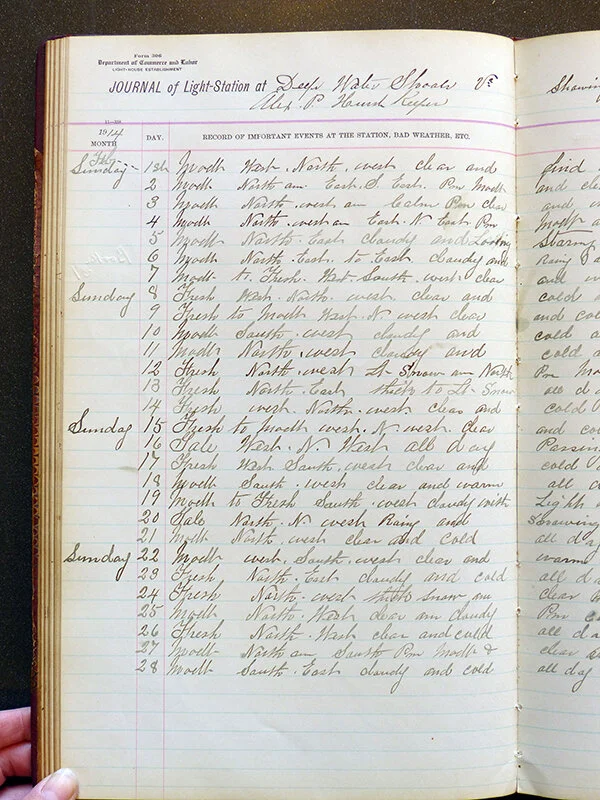 Form 306
Department of Commerce and Labor
LIGHT-HOUSE ESTABLISHMENT
JOURNAL of Light-Station at Deep Water Shoals Va
Alex. P. Keeper
1914
MONTH DAY. RECORD OF IMPORTANT EVENTS AT THE STATION, BAD WEATHER, ETC.
Feby
Sunday 1st Modt West. North. west clear and
2 Modt North am. East. S East. Pm Modt
3 Modt North. west am Calm Pm clear
4 Modt North. west am East. N East Pm
5 Modt North. East cloudy and Looking
6 Modt North. East. to East cloudy and
7 Modt. to Fresh. West South. west clear
Sunday 8 Fresh West. North. west. clear and
9 Fresh to Modt West. N west clear
10 Modt South. west cloudy and
11 Modt North. west cloudy and
12 Fresh North. west Lt Snow am North
13 Fresh North. East thick to Lt Snow
14 Fresh west. North. west clear and
Sunday 15 Fresh to Modt west. N. west. clear
16 Gale West. N. West all day
17 Fresh West South. west clear and
18 Modt South. west clear and warm
19 Modt to Fresh South. west cloudy with
20 Gale North. N west Rainy and
21 Modt North. west clear and cold
Sunday 22 Modt west. South. west clear and
23 Fresh North. East cloudy and cold
24 Fresh North. west thick snow am
25 Modt North. West clear am cloudy
26 Fresh North. West clear and cold
27 Modt North am South Pm Modt &
28 Modt South. East cloudy and cold
Showing
find
and
and
Modt a
Storm
Rainy
and
cold
and
cold
cold
Pm
all d
cold
and
Passin
cold
all
Light
Snowing
all day
warm
all da
clear
Pm
all d
clear
all day